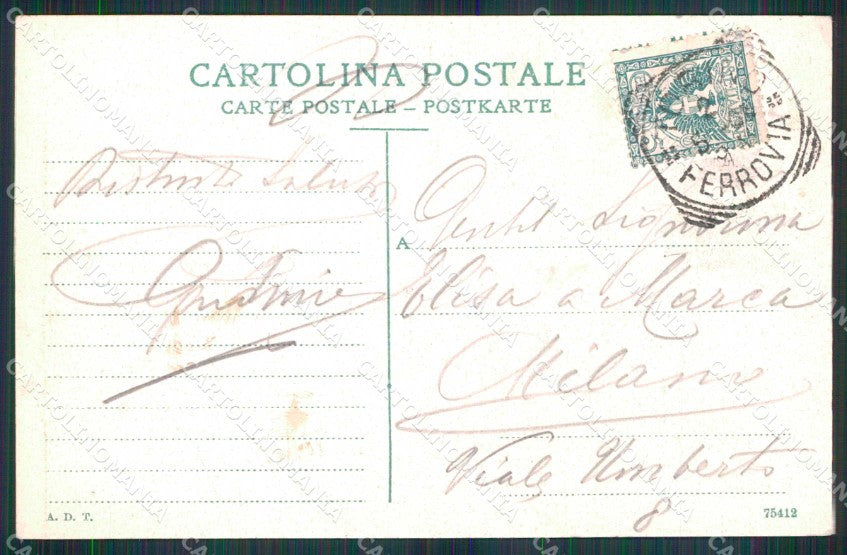 CARTOLINA POSTALE
CARTE POSTALE – POSTKARTE
FERROVIA
Distinti Saluti
A
Gent. Signorina
Elisa a Marca
Milano
Viale Umberto
8
A. D. T.
75412
CARTOLINOMANIA